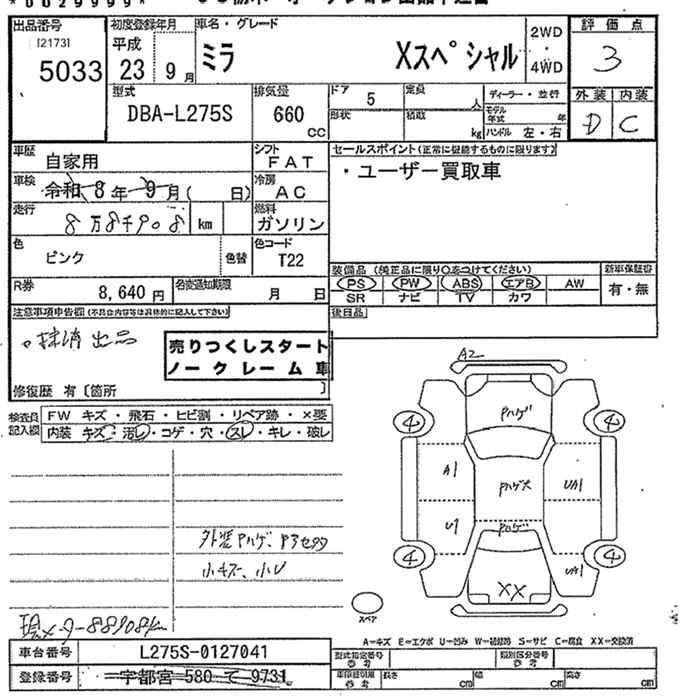 *0029999*
出品番号 [2173] 5033
初度登録年月 平成 23年 9月
車名・グレード ミラ Xスペシャル
2WD・4WD
評価点 3
型式 DBA-L275S
排気量 660 CC
ドア 5
形状
定員 人
積載 kg
ディーラー・並行
モデル年式 年
ハンドル 左・右
外装 内装
D C
車歴 自家用
シフト FAT
セールスポイント(正常に機能するものに限ります)
・ユーザー買取車
車検 令和 8年 9月( 日)
冷房 AC
走行 8万8千908 km
燃料 ガソリン
色 ピンク 色替
色コード T22
R券 8,640円
名変通知期限 月 日
装備品(純正品に限り○をつけてください)
PS PW ABS エアB AW
SR ナビ TV カワ
新車保証書 有・無
注意事項申告欄(不具合内容等は具体的に記入して下さい)
後日品
売りつくしスタート
ノークレーム車
修復歴 有〔箇所 〕
検査員記入欄
FW キズ・飛石・ヒビ割・リペア跡・×要
内装 キズ・汚レ・コゲ・穴・スレ・キレ・破レ
A2
Pハゲ
4 4
A1 Pハゲ大 UA1
U1 Pハゲ UA1
4 4
XX
スペア
小キズ、小U
A=キズ E=エクボ U=凹み W=補修跡 S=サビ C=腐食 XX=交換済
車台番号 L275S-0127041
型式指定番号 参考
類別区分番号 参考
登録番号 宇都宮 580 て 9731
長さ cm 幅 cm 高さ cm